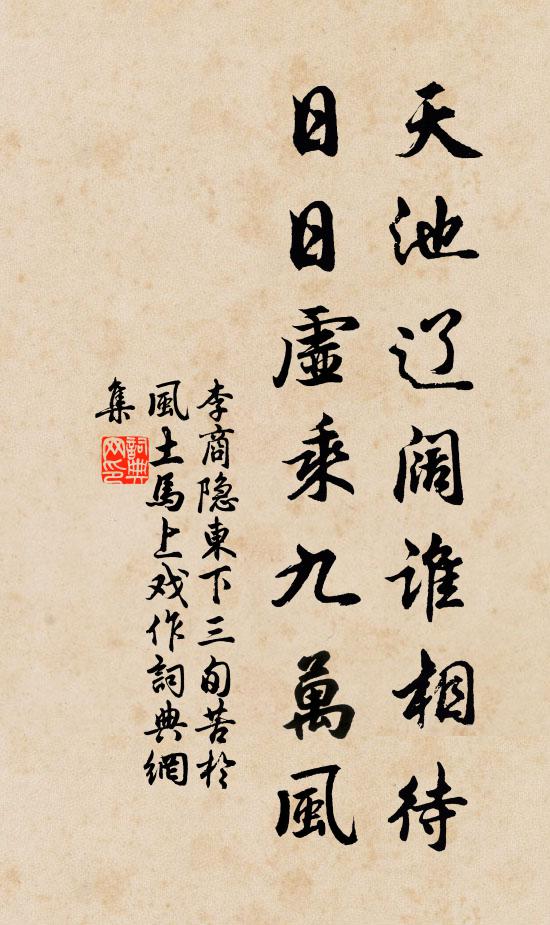 天池辽阔谁相待
日日虚乘九萬風
李商隐東下三旬苦於
風土馬上戏作詞典網
集
詞典網印